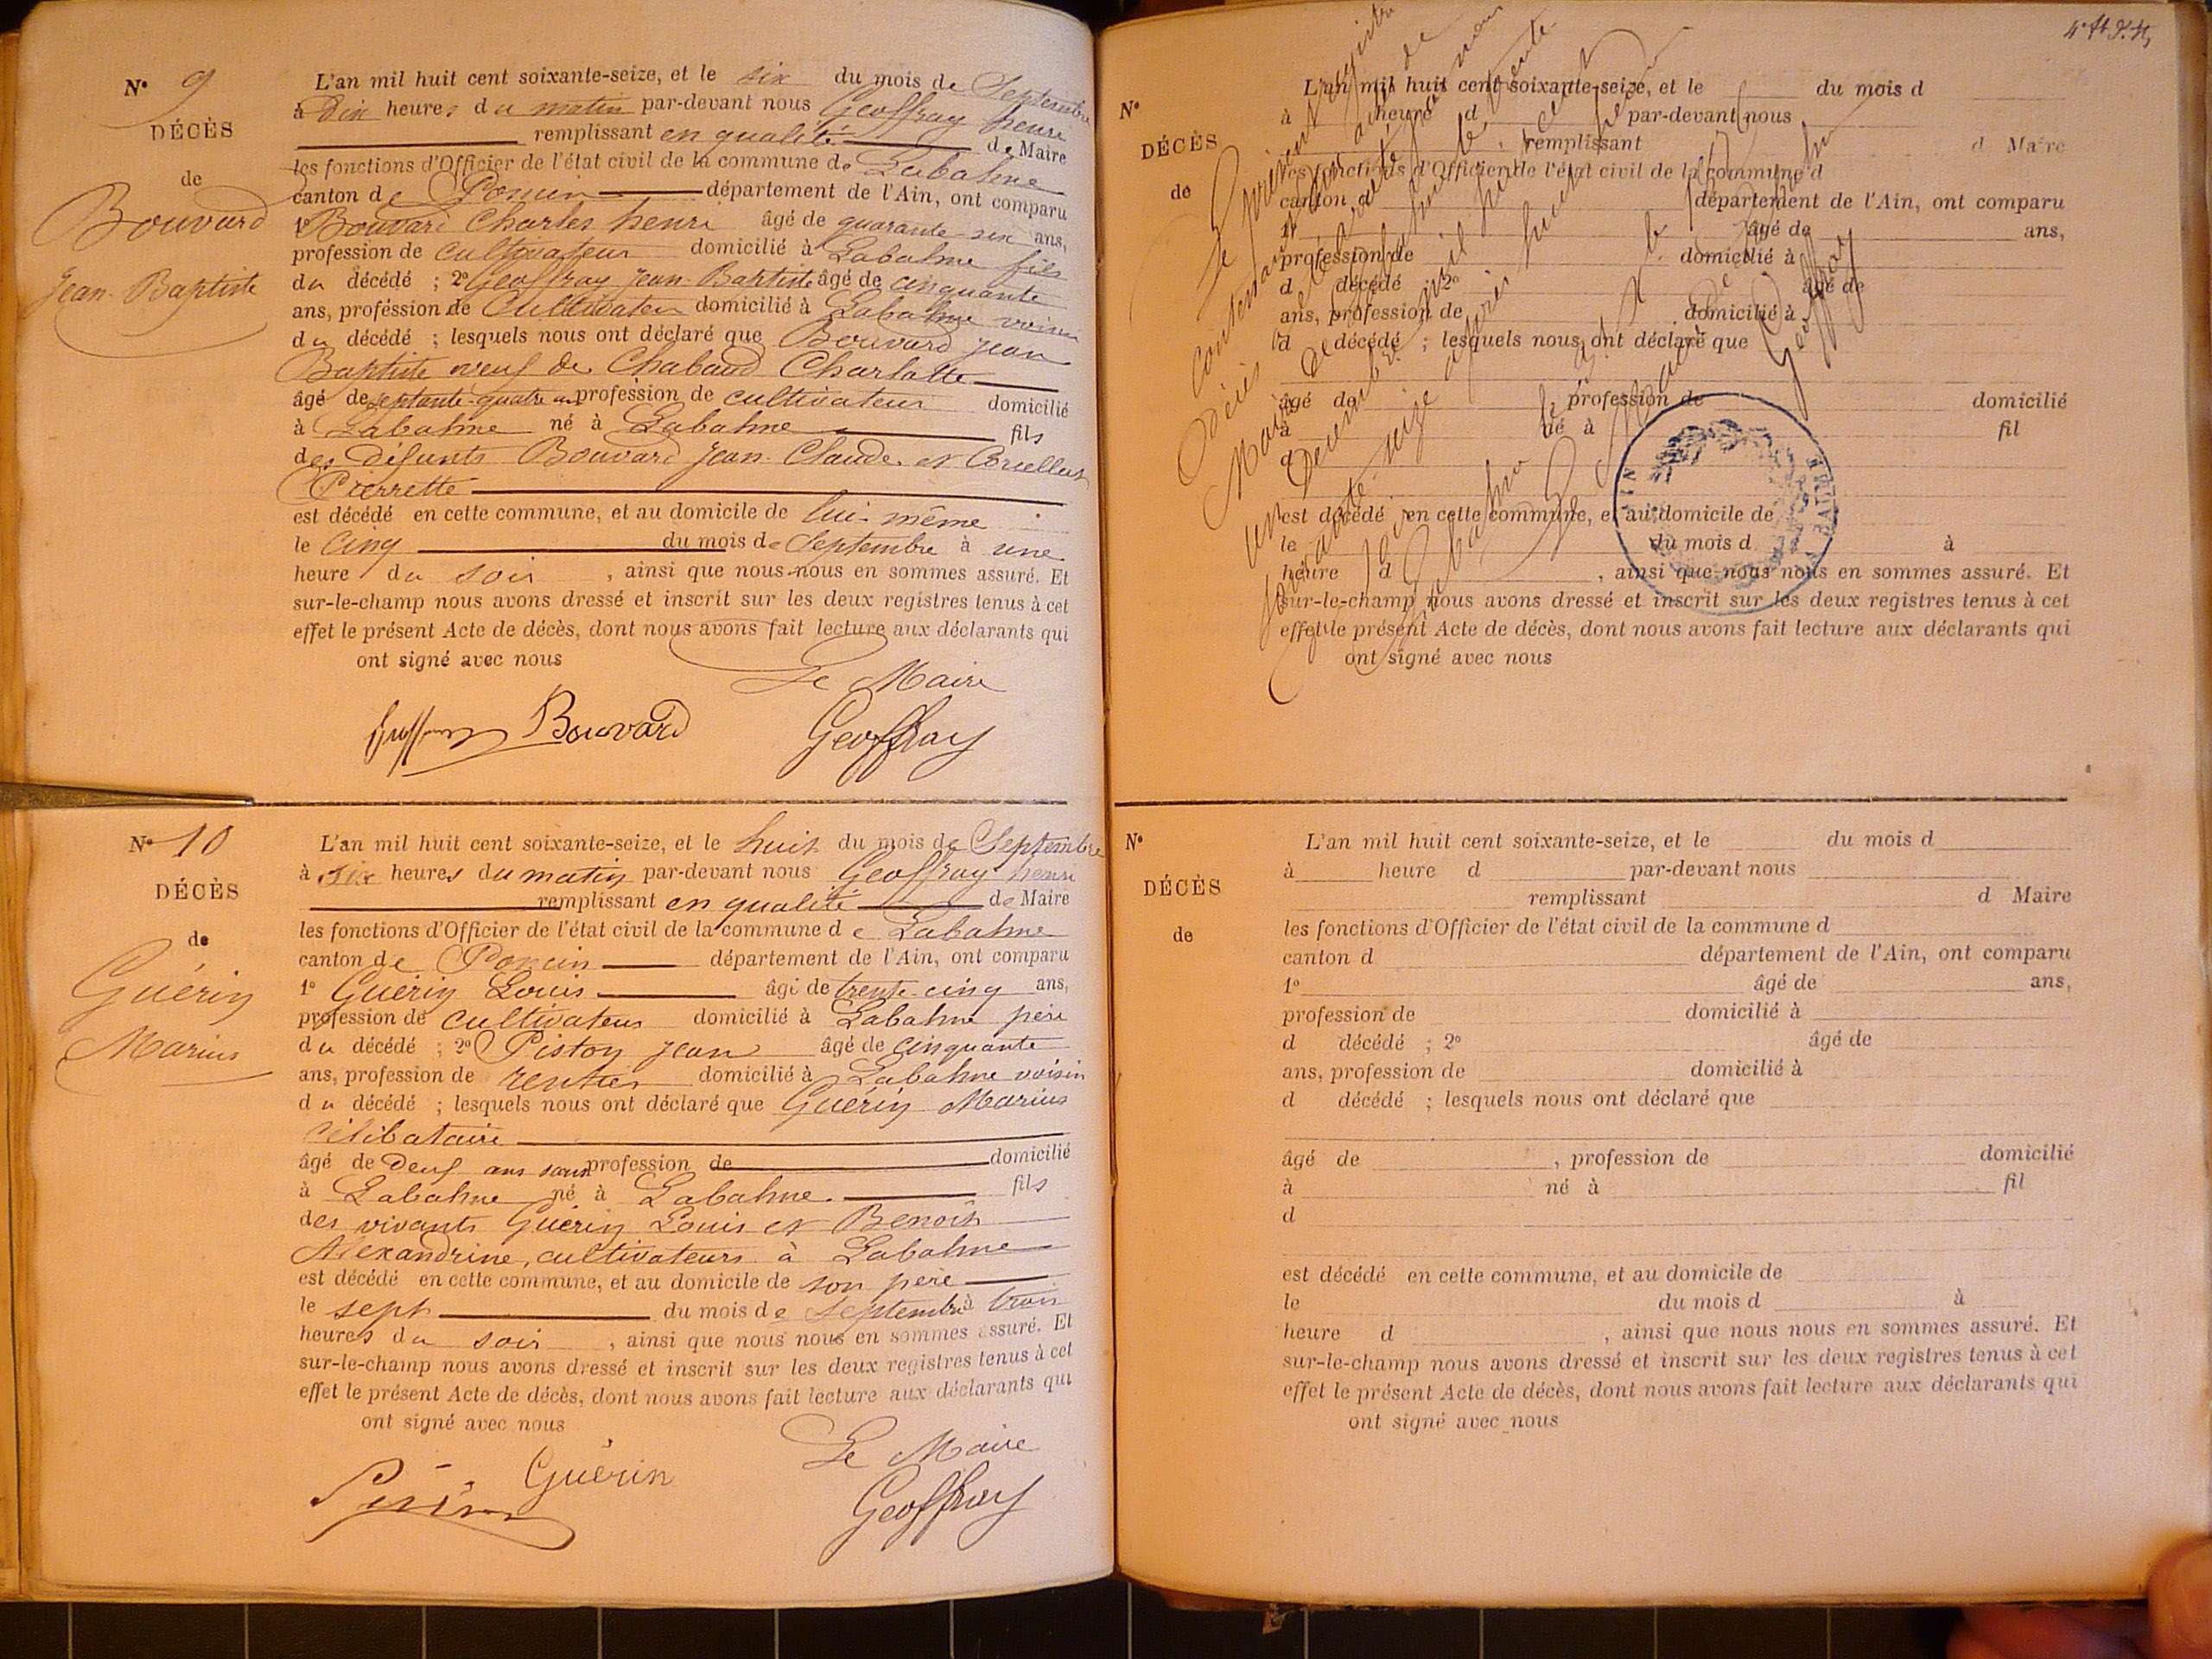 N° 9
DÉCÈS
de
Bouvard
Jean-Baptiste
L'an mil huit cent soixante-seize, et le six du mois de Septembre
à Dix heures du matin par-devant nous Geoffray henri
remplissant en qualité de Maire
les fonctions d'Officier de l'état civil de la commune de Labalme
canton de Poncin département de l'Ain, ont comparu
1° Bouvard Charles henri âgé de quarante six ans,
profession de cultivateur domicilié à Labalme fils
du décédé ; 2° Geoffray Jean-Baptiste âgé de cinquante
ans, profession de Cultivateur domicilié à Labalme voisin
du décédé ; lesquels nous ont déclaré que Bouvard Jean
Baptiste veuf de Chabaud Charlotte
âgé de septante-quatre ans profession de cultivateur domicilié
à Labalme né à Labalme fils
des défunts Bouvard Jean-Claude et
Pierrette
est décédé en cette commune, et au domicile de lui-même
le cinq du mois de Septembre à une
heure du soir , ainsi que nous nous en sommes assuré. Et
sur-le-champ nous avons dressé et inscrit sur les deux registres tenus à cet
effet le présent Acte de décès, dont nous avons fait lecture aux déclarants qui
ont signé avec nous
Le Maire
Bouvard Geoffray
N° 10
DÉCÈS
de
Guérin
Marius
L'an mil huit cent soixante-seize, et le huit du mois de Septembre
à six heures du matin par-devant nous Geoffray henri
remplissant en qualité de Maire
les fonctions d'Officier de l'état civil de la commune de Labalme
canton de Poncin département de l'Ain, ont comparu
1° Guérin Louis âgé de trente-cinq ans,
profession de cultivateur domicilié à Labalme père
du décédé ; 2° Piston Jean âgé de cinquante
ans, profession de rentier domicilié à Labalme voisin
du décédé ; lesquels nous ont déclaré que Guérin Marius
célibataire
âgé de Deux ans sans profession de domicilié
à Labalme né à Labalme fils
des vivants Guérin Louis et Benoit
Alexandrine, cultivateurs à Labalme
est décédé en cette commune, et au domicile de son père
le sept du mois de Septembre à trois
heures du soir , ainsi que nous nous en sommes assuré. Et
sur-le-champ nous avons dressé et inscrit sur les deux registres tenus à cet
effet le présent Acte de décès, dont nous avons fait lecture aux déclarants qui
ont signé avec nous
Le Maire
Guérin Geoffray
N°
DÉCÈS
de
L'an mil huit cent soixante-seize, et le du mois d
à heure d par-devant nous
remplissant d Maire
les fonctions d'Officier de l'état civil de la commune d
canton d département de l'Ain, ont comparu
1° âgé de ans,
profession de domicilié à
d décédé ; 2° âgé de
ans, profession de domicilié à
d décédé ; lesquels nous ont déclaré que
âgé de , profession de domicilié
à né à fil
d
est décédé en cette commune, et au domicile de
le du mois d à
heure d , ainsi que nous nous en sommes assuré. Et
sur-le-champ nous avons dressé et inscrit sur les deux registres tenus à cet
effet le présent Acte de décès, dont nous avons fait lecture aux déclarants qui
ont signé avec nous
Le présent registre
contenant
Décès
Maire de
Décembre mil huit cent
soixante-seize
Labalme
Le Maire
Geoffray
AIN
N°
DÉCÈS
de
L'an mil huit cent soixante-seize, et le du mois d
à heure d par-devant nous
remplissant d Maire
les fonctions d'Officier de l'état civil de la commune d
canton d département de l'Ain, ont comparu
1° âgé de ans,
profession de domicilié à
d décédé ; 2° âgé de
ans, profession de domicilié à
d décédé ; lesquels nous ont déclaré que
âgé de , profession de domicilié
à né à fil
d
est décédé en cette commune, et au domicile de
le du mois d à
heure d , ainsi que nous nous en sommes assuré. Et
sur-le-champ nous avons dressé et inscrit sur les deux registres tenus à cet
effet le présent Acte de décès, dont nous avons fait lecture aux déclarants qui
ont signé avec nous